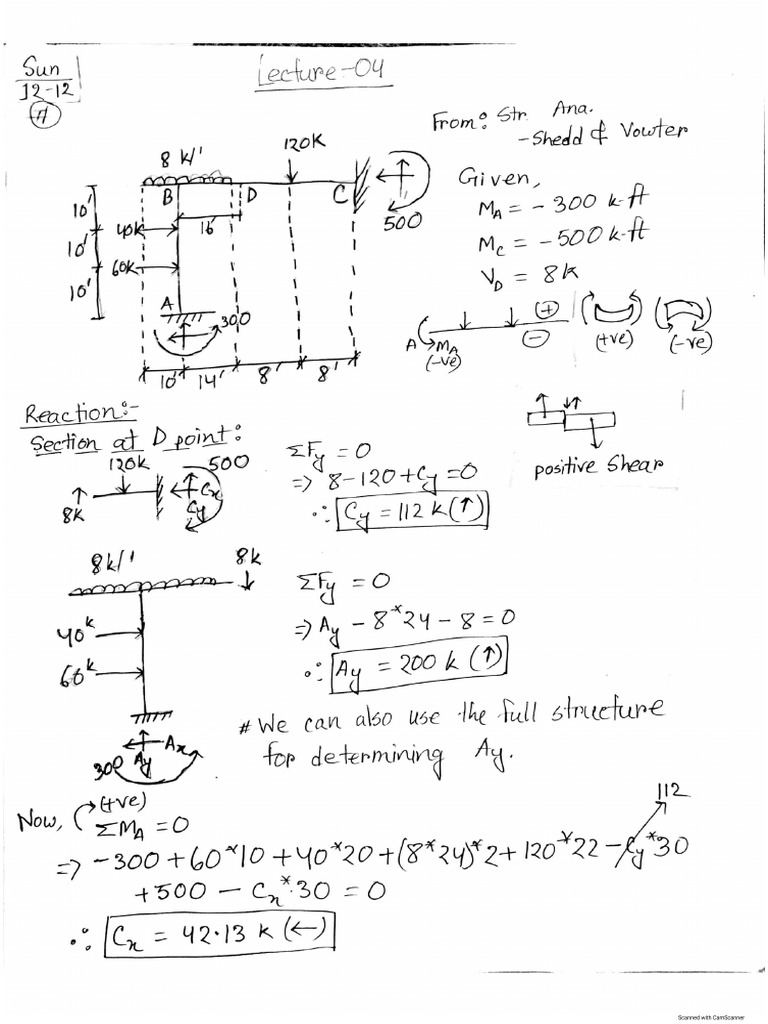 Sun
12-12
A
Lecture-04
From: Str. Ana.
- Shedd & Vowter
8 k/'
120K
B
D
C
500
10'
10'
10'
40k
16'
60k
A
300
10' 14' 8' 8'
Given,
M_A = - 300 k-ft
M_C = - 500 k-ft
V_D = 8k
A M_A
(-ve)
+
-
(+ve)
(-ve)
positive Shear
Reaction:-
Section at D point:
120k
500
8k
Cx
Cy
ΣFy = 0
=> 8-120+Cy = 0
∴ Cy = 112 k (↑)
8k/'
8k
40k
60k
Ax
Ay
300
ΣFy = 0
=> Ay - 8*24 - 8 = 0
∴ Ay = 200 k (↑)
# We can also use the full structure
for determining Ay.
Now, (+ve)
ΣM_A = 0
112
=> -300+60*10+40*20+(8*24)*2+120*22-Cy*30
+500 - Cx*30 = 0
∴ Cx = 42.13 k (←)
Scanned with CamScanner